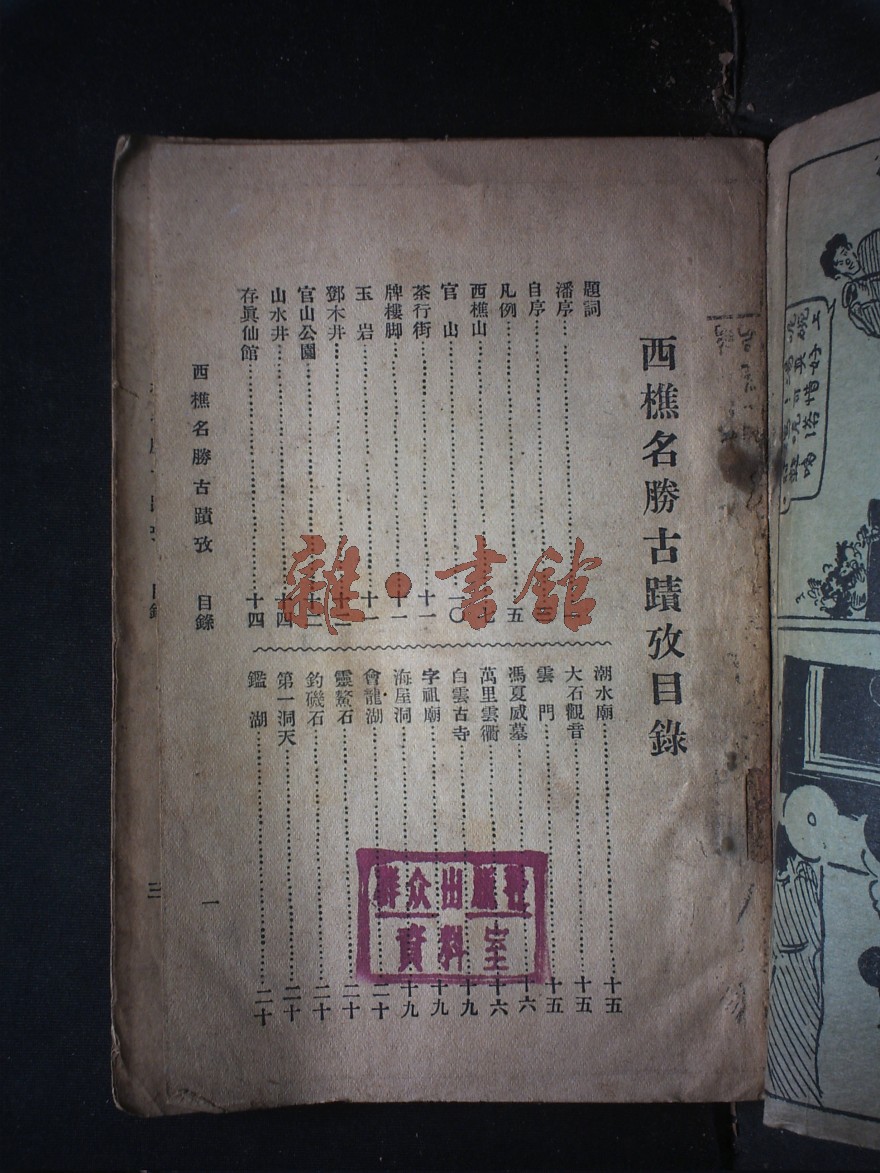 西樵名勝古蹟攷目錄
題詞
潘序……一
自序……三
凡例……五
西樵山……七
官山……一〇
茶行街……十一
牌樓脚……十一
玉岩……十一
鄧木井……十二
官山公園……十二
山水井……十四
存眞仙館……十四
潮水廟……十五
大石觀音……十五
雲門……十五
馮夏威墓……十六
萬里雲衢……十六
白雲古寺……十九
字祖廟……十九
海屋洞……十九
會龍湖……二十
靈鰲石……二十
釣磯石……二十
第一洞天……二十
鑑湖……二十
西樵名勝古蹟攷 目錄
一
雜·書館
群众出版社
資料室
目錄
三